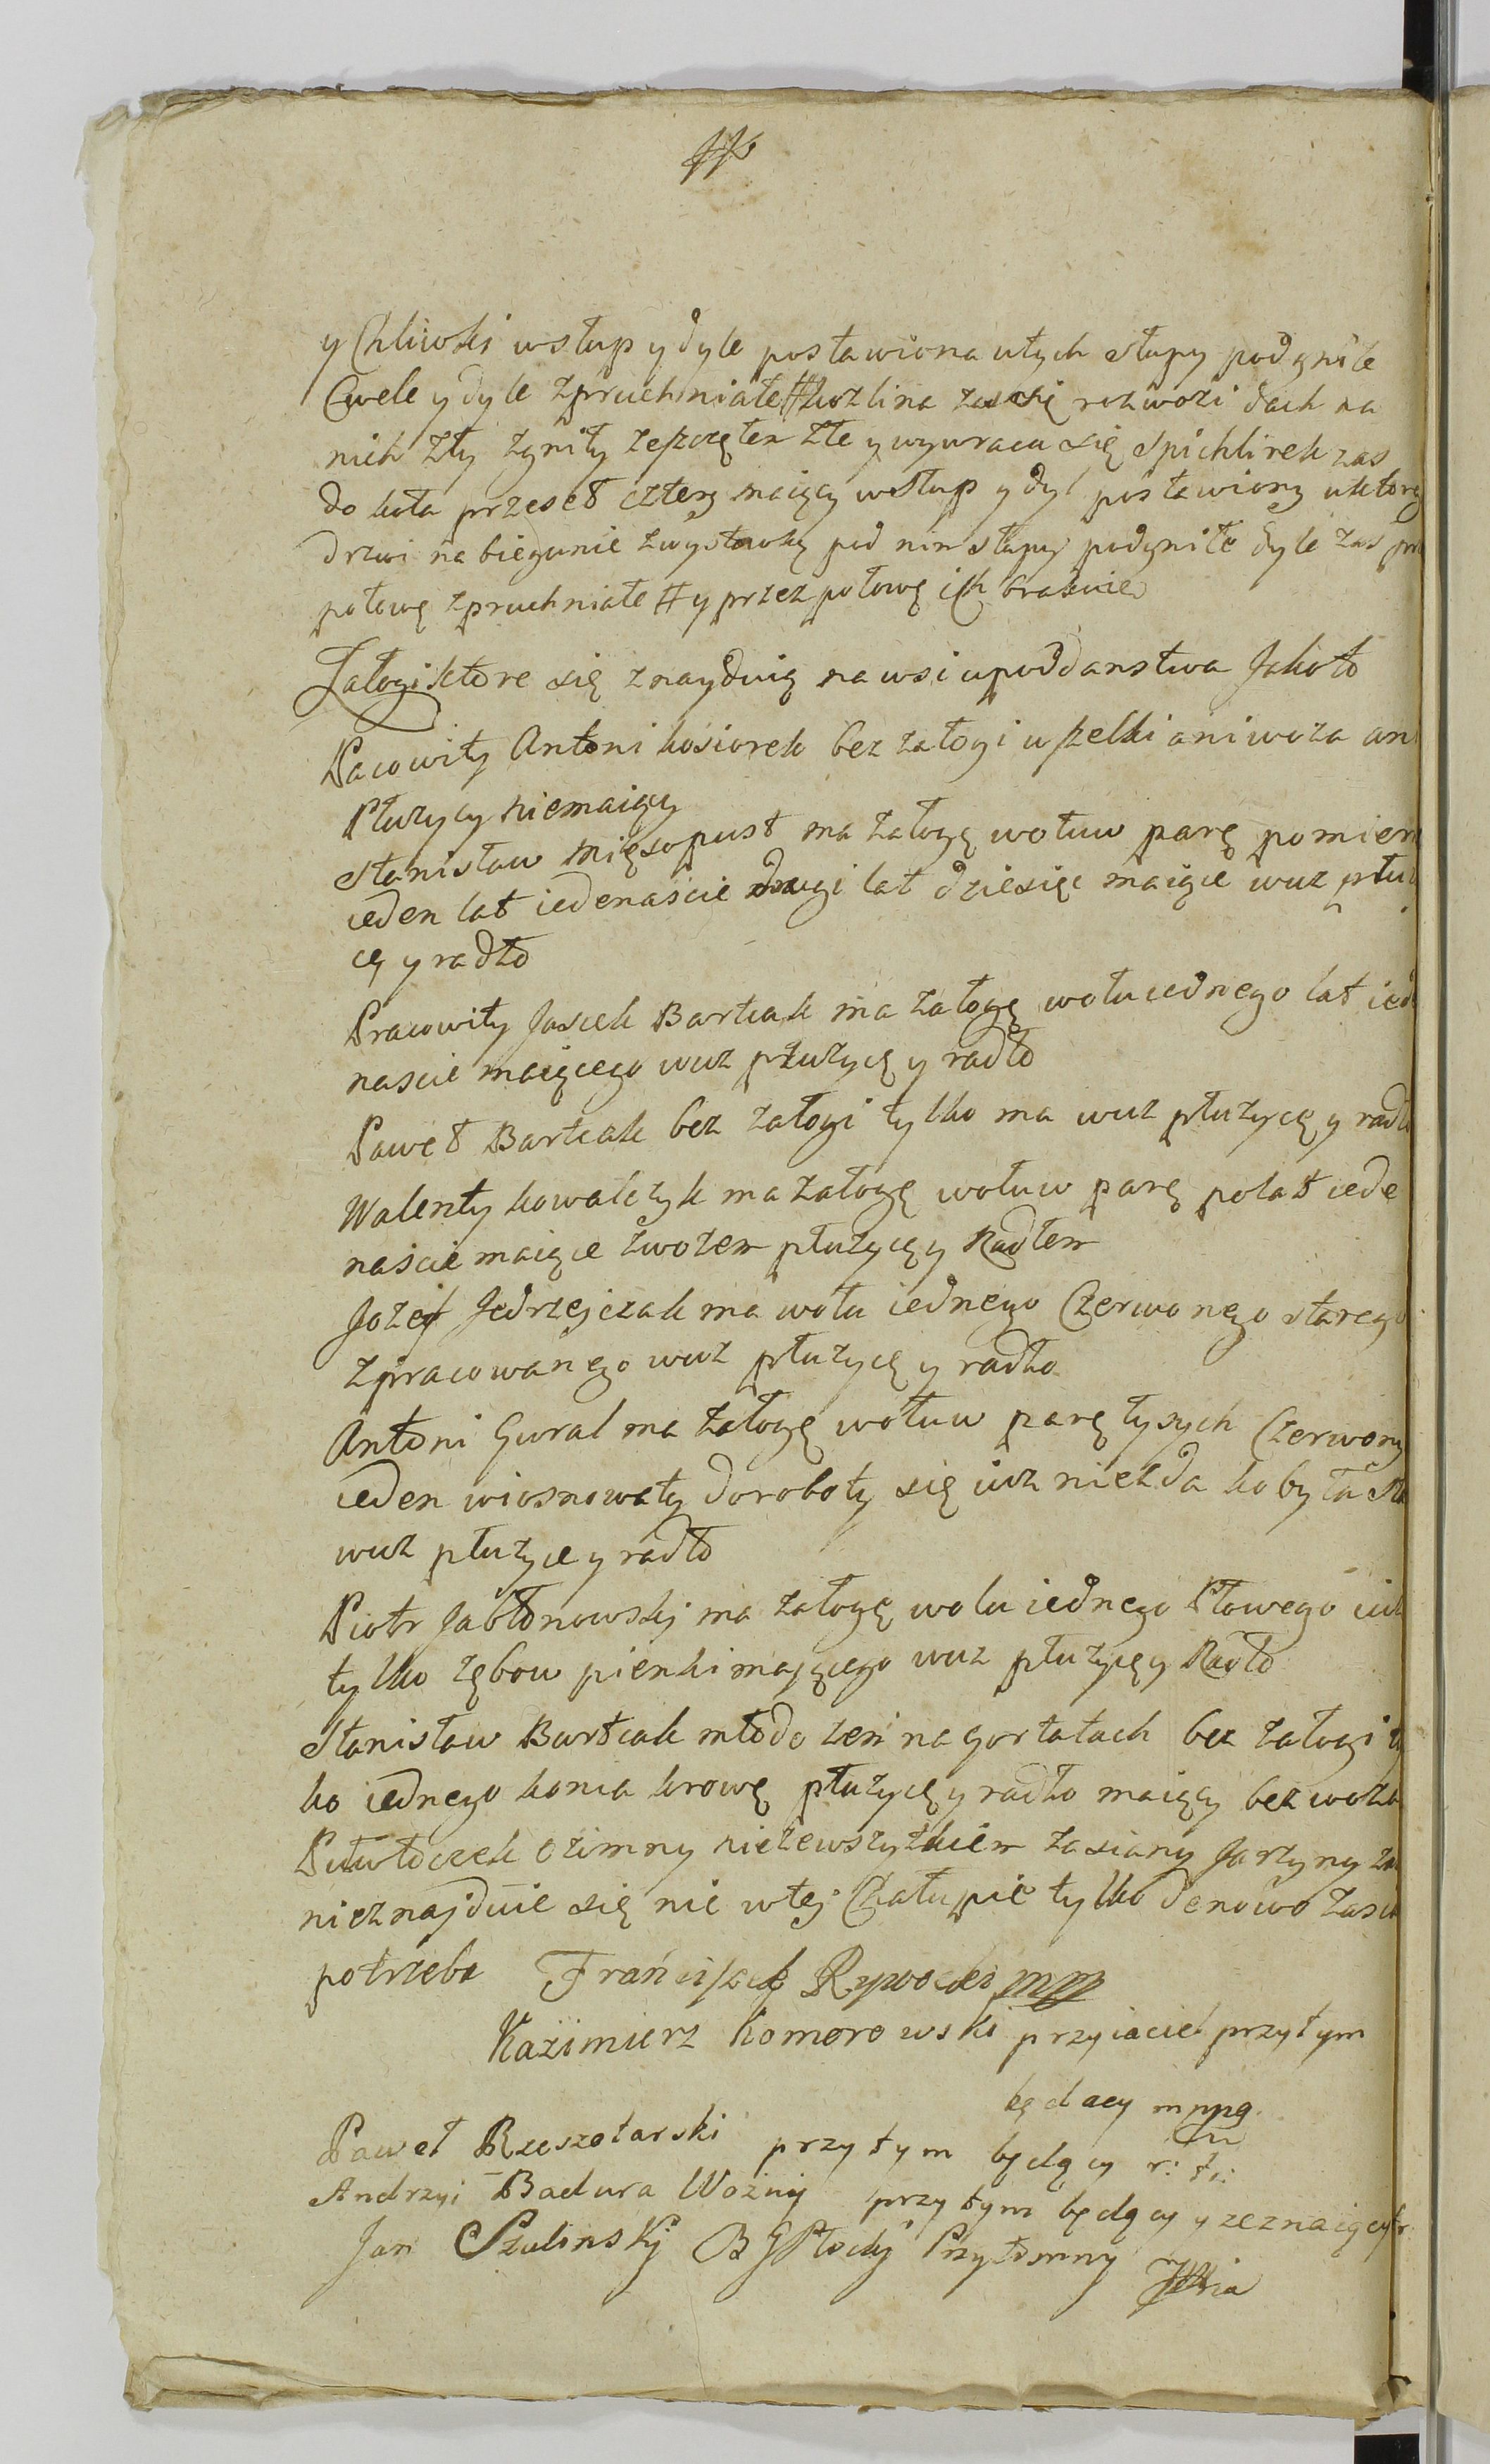 y Chliwki wstup y dyle postawiona utych słupy podgniłe
Cwele y dyle zpruchniałe # kozlina zas się rozwozi dach na
nich zły zgniły zeszczętem złe y wywraca się Spichlirek zas
do koła przeseł cztery maiący wstup y dyl postawiony uktory
drzwi na biegunie zwystawką pod nim słupy podgniłe dyle zas
połowę zpruchniałe # y przez połowę ich brakuie
Załogi ktore się znayduią na wsi upoddanstwa Jakoto
Pacowity Antoni kosiorek bez załogi wszelki ani woza an
Płuzycy niemaiący
Stanisław Mięsopust ma załogę wołuw parę pomiern
ieden lat iedenascie drugi lat dziesięc maiące wuz płuz
cę y radło
Pracowity Jacek Bartcak ma załogę wołu iednego lat ied
nascie maiącego wuz płuzycę y radło
Paweł Bartcak bez załogi tylko ma wuz płuzycę y radł
Walenty kowalczyk ma załogę wołuw parę polat iede
nascie maiące zwozem płuzycę y Radłem
Jozef Jedrzejczak ma wołu iednego Czerwonego starego
zpracowanego wuz płuzycę y radło
Antoni Gural ma załogę wołuw parę łysych Czerwony
ieden wiosnowaty doroboty się iuz niezda kobyła sta
wuz płuzyce y radło
Piotr Jabłonowskj ma załogę wołu iednego Płowego iuz
tylko zębow pienki mającego wuz płuzycę y Radło
Stanisław Bartcak młodozeni nagorłatach bez załogi ty
ko iednego konia krowę płuzycę y radło maiący bez woza
Pułwłoczek Ozimny niezewszytkiem zasiany Jarzyny za
nieznajduie się nic wtej Chałupie tylko denowo zasi
potrzeba Franciszek Rywocki mpp
Kazimierz Komorowski przyiaciel przytym
będacy mppą
Paweł Rzeszotarski przytym będący
Andrzyi Badura Wozny przytym będący y zeznaiący
Jan Szulinskj B G Płocky Przytomny